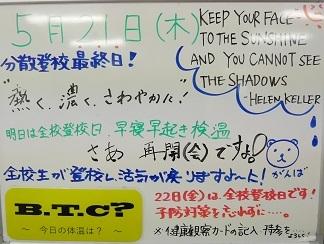 5月21日(木)
KEEP YOUR FACE
TO THE SUNSHINE
AND YOU CANNOT SEE
THE SHADOWS
-HELEN KELLER
分散登校最終日！
"熱く、濃く、さわやかに！"
明日は全校登校日、早寝早起き検温
さあ 再開(会)ですよ！
全校生が登校し、活気が戻りますよ〜ト！ がんば
B.T.C?
〜今日の体温は？〜
22日(金)は、全校登校日です！
予防対策を忘れずに‥‥。
※健康観察カードの記入・持参を